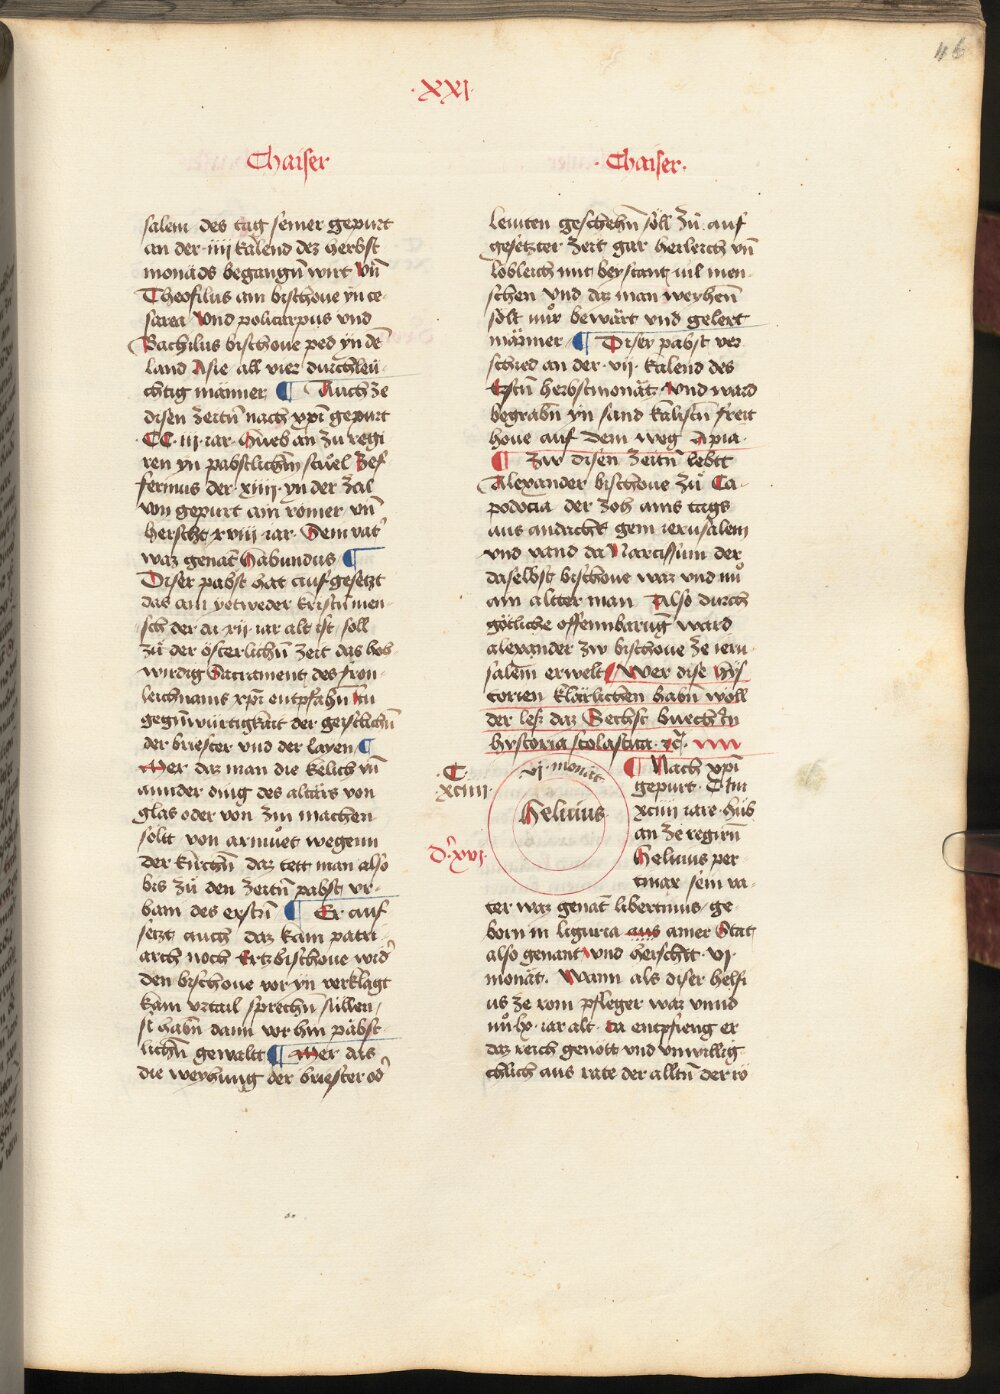 46
·XXI·
Chaiser
salem des tag seiner gepurt
an der ·iiij kalend dez herbst
monads begangn̄ wirt Vn̄
Theofilus ain bischoue yn ce-
sarea Vnd policarpus vnd
Bachilus bischoue ped yn dē
land Asie all vier durchleu-
chtig männer ¶ Auch ze
disen zeitn̄ nach xp̄i gepurt
·CC·iij·iar· Hueb an zu regi
ren yn pabstlichn̄ stuel Zef
fermus der ·xiiij· yn der zal
von gepurt ain romer vn̄
herscht xviij iar· Dem vat̓
waz genāt Habundus ¶
Diser pabst hat aufgesetzt
das ain yetweder kristn̄ men-
sch der da ·xij· iar alt ist soll
zu der österlichn̄ zeit das hoh
wirdig Sacrament des fron-
leichnams xp̄i entpfahn̄ Jn
gegn̄würtigkait der geistlichn̄
der briester vnd der layen ¶
Mer daz man die kelich vn̄
annder ding des altars von
glas oder von zin machen
söltt von armuet wegenn
der kirchn̄ daz tett man also
bis zu den zeitn̄ pabst vr-
bam des erstn̄ ¶ Er auf
setzt auch daz kain patri-
arch noch Ertzbischoue wid̓
den bischoue vor yn verklagt
kain vrtail sprechn̄ süllen
st habn̄ dann vor hin päbst-
lichn̄ gewaltt ¶ Mer das
die weyhung der briester od̓
·Chaiser·
lewten geschehn̄ söll zu auf
gesetzter zeit gar herleich vn̄
lobleich mit beystant vil men-
schen vnd daz man weyhen̄
sölt nur bewärt vnd gelert
männer ¶ Diser pabst ver
schied an der ·vij· kalend des
Erstn̄ herbstmonät· Vnd ward
begrabn̄ yn sand kalistn̄ freit
houe auf dem weg Apia·
¶ Zw disen zeitn̄ lebtt
Alexander bischoue zu Ca-
podocia der zoh ains tags
aus andacht gem ierusalem
vnd vand da Narcissum der
daselbst bischoue waz vnd nu
ain altter man Also durch
götliche offennbarūg ward
alexander zw bischoue ze ieru-
salem erwelt Wer dise Hys
torien klärlichen habn̄ woll
der lese daz Sechst buech Jn
hystoria scolastica· ⁊c̄·
·C·
·xciiij·
vj· monät
HelIuius
d̓·xvj·
¶ Nach xp̄i
gepurt· C im
xciiij iare· hub
an ze regirn̄
Heliuus per
tinax sein va-
ter waz genāt libertinus ge-
born in liguria aus ainer Stat
also genant vnd herschtt· vj·
monät. Wann als diser helfi
us ze rom pfleger waz vnnd
nu·lxx·iar alt· da entpfieng er
daz reich genött vnd vnwillig
chlich aus rate der alltn̄ der rö